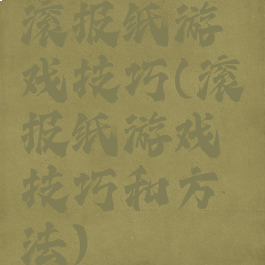 滚报纸游
戏技巧(滚
报纸游戏
技巧和方
法)